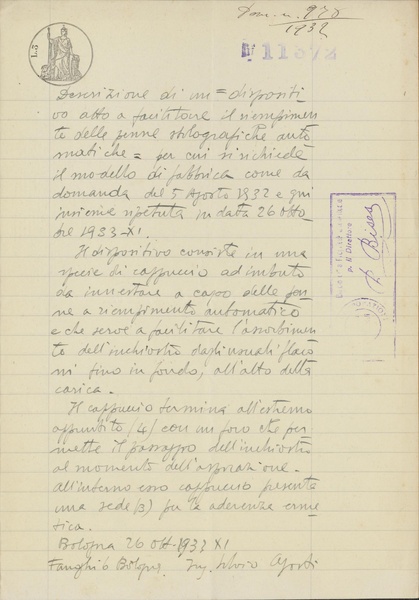 Dom. n. 978
1932
L.5
N 11872
Descrizione di un = dispositi
vo atto a facilitare il riempimen
to delle penne stilografiche auto
matiche = per cui si richiede
il modello di fabbrica come da
domanda del 5 Agosto 1932 e qui
insieme ripetuta in data 26 otto
bre 1933 - XI.
Il dispositivo consiste in una
specie di cappuccio ad imbuto
da innestare a capo delle pen
ne a riempimento automatico
e che serve a facilitare l'assorbimen
to dell'inchiostro dagli usuali flaco
ni fino in fondo, all'atto della
carica.
Il cappuccio termina all'estremo
appuntito (4) con un foro che per
mette il passaggio dell'inchiostro
al momento dell'aspirazione.
All'interno esso cappuccio presenta
una sede (3) per la aderenza erme
tica.
Bologna 26 Ott. 1933 XI
Ing. Silvio
p. Il Direttore